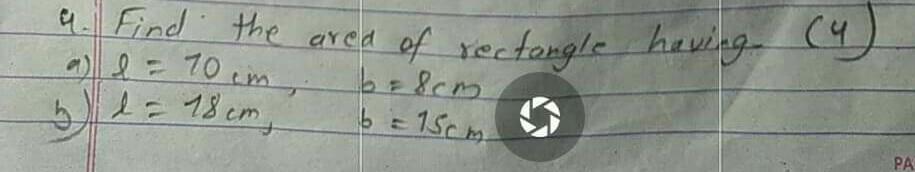 4. Find the area of rectangle having- (4)
a) l = 10 cm, b = 8cm
b) l = 18 cm, b = 15cm
PA